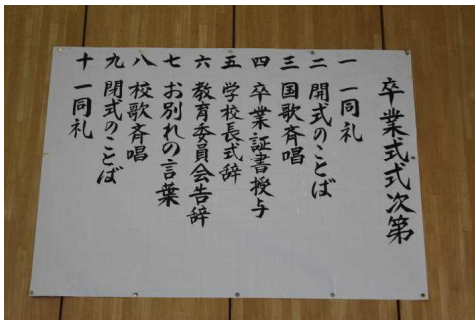 卒業式式次第
一 一同礼
二 開式のことば
三 国歌斉唱
四 卒業証書授与
五 学校長式辞
六 教育委員会告辞
七 お別れの言葉
八 校歌斉唱
九 閉式のことば
十 一同礼